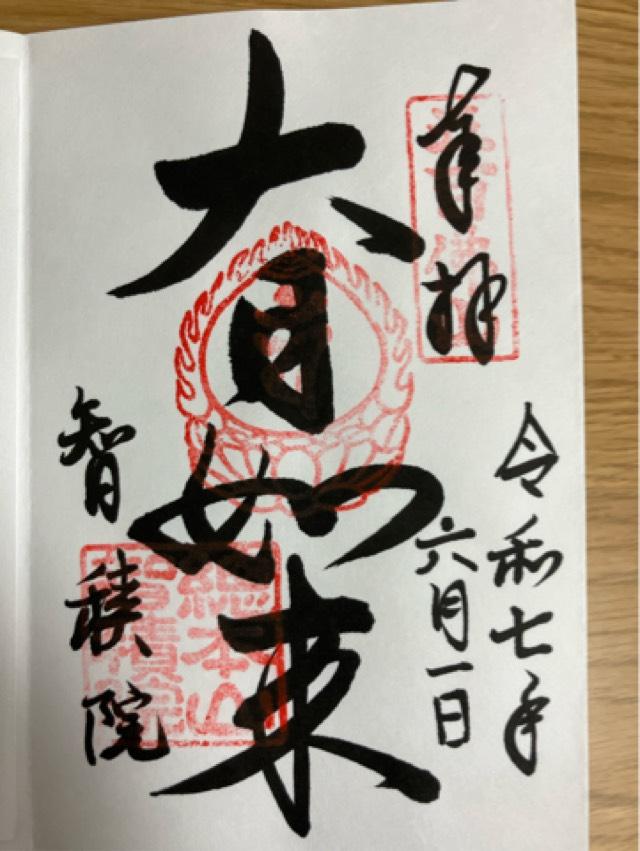 奉拝
令和七年
六月一日
大日如来
智積院
總本山
智積院